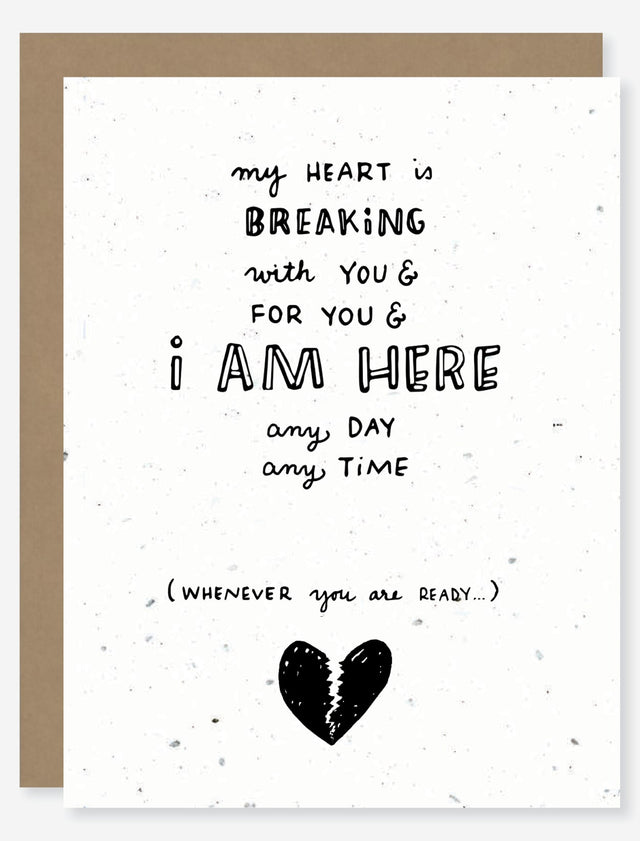 my HEART is
BREAKiNG
with YOU &
FOR YOU &
i AM HERE
any DAY
any TiME
(WHENEVER you are READY...)